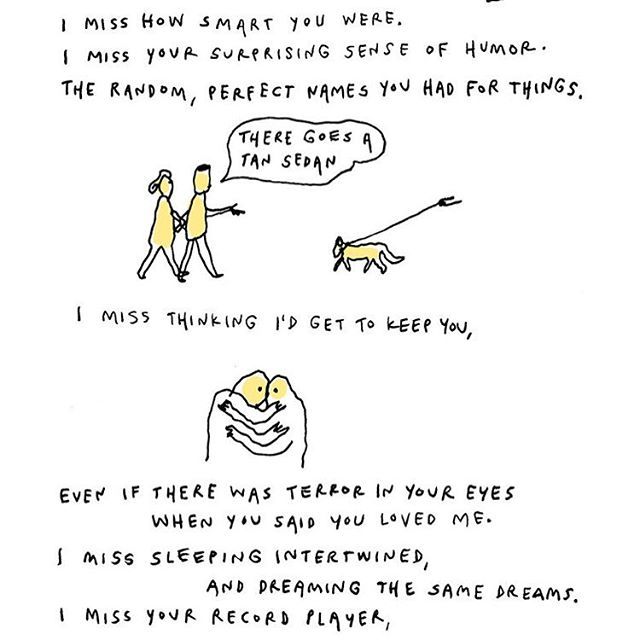 I MISS HOW SMART YOU WERE.
I MISS YOUR SURPRISING SENSE OF HUMOR.
THE RANDOM, PERFECT NAMES YOU HAD FOR THINGS.
THERE GOES A
TAN SEDAN
I MISS THINKING I'D GET TO KEEP YOU,
EVEN IF THERE WAS TERROR IN YOUR EYES
WHEN YOU SAID YOU LOVED ME.
I MISS SLEEPING INTERTWINED,
AND DREAMING THE SAME DREAMS.
I MISS YOUR RECORD PLAYER,